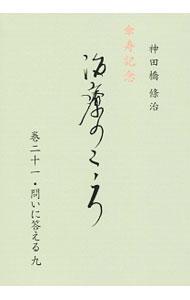 神田橋 條治
傘寿記念
治療のこころ
巻二十一・問いに答える 九